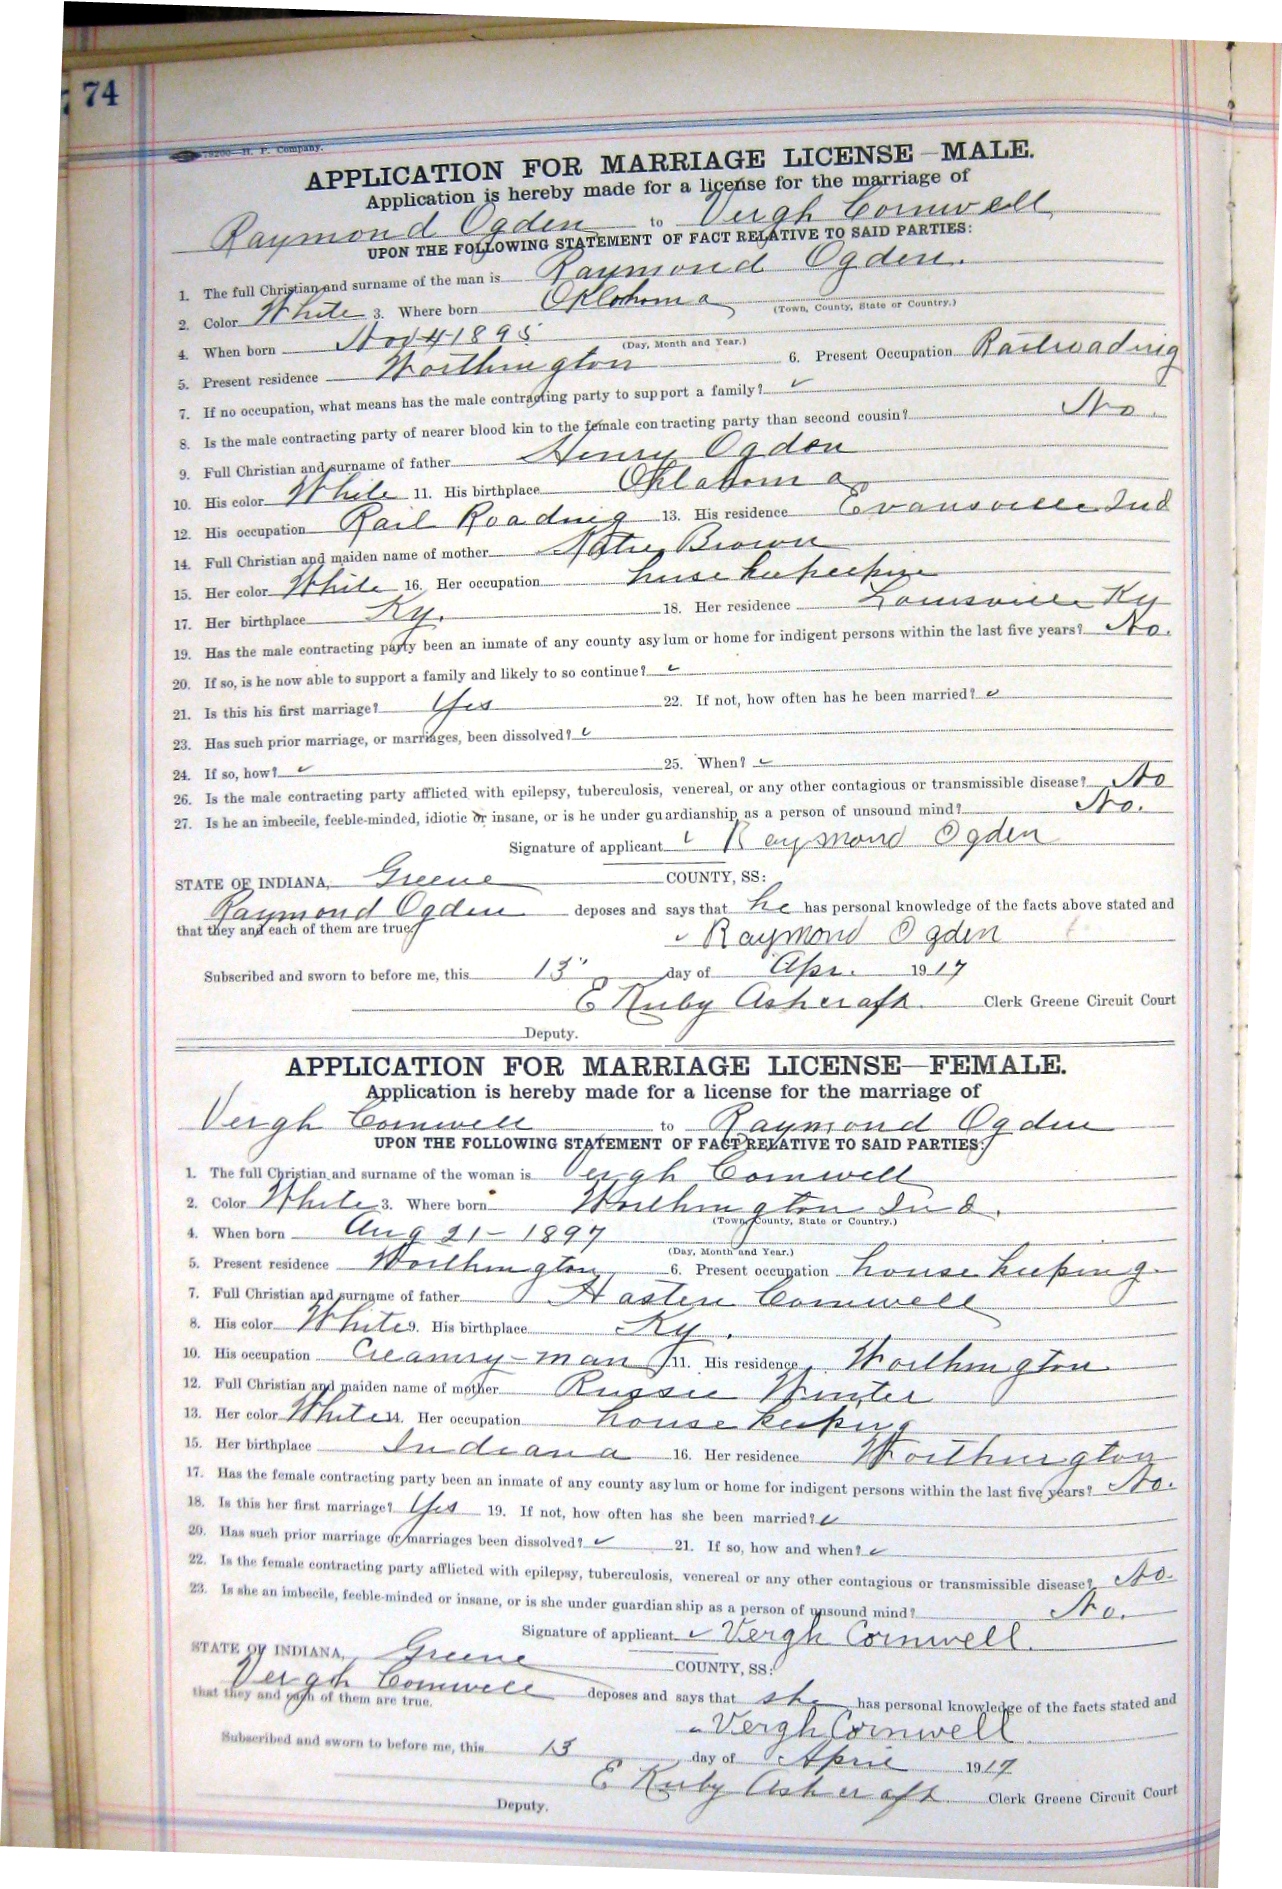 74
78200—H. P. Company.
APPLICATION FOR MARRIAGE LICENSE—MALE.
Application is hereby made for a license for the marriage of
Raymond Ogden to Vergh Cornwell
UPON THE FOLLOWING STATEMENT OF FACT RELATIVE TO SAID PARTIES:
1. The full Christian and surname of the man is Raymond Ogden.
2. Color White 3. Where born Oklohoma
(Town, County, State or Country.)
4. When born Nov 4 1895
(Day, Month and Year.)
5. Present residence Worthington 6. Present Occupation Railroading
7. If no occupation, what means has the male contracting party to support a family? ✓
8. Is the male contracting party of nearer blood kin to the female contracting party than second cousin? No
9. Full Christian and surname of father Henry Ogden
10. His color White 11. His birthplace Oklahoma
12. His occupation Rail Roading 13. His residence Evansville Ind
14. Full Christian and maiden name of mother Katie Brown
15. Her color White 16. Her occupation
17. Her birthplace Ky. 18. Her residence Louisville Ky
19. Has the male contracting party been an inmate of any county asylum or home for indigent persons within the last five years? No.
20. If so, is he now able to support a family and likely to so continue? ✓
21. Is this his first marriage? Yes 22. If not, how often has he been married? ✓
23. Has such prior marriage, or marriages, been dissolved? ✓
24. If so, how? ✓ 25. When? ✓
26. Is the male contracting party afflicted with epilepsy, tuberculosis, venereal, or any other contagious or transmissible disease? No
27. Is he an imbecile, feeble-minded, idiotic or insane, or is he under guardianship as a person of unsound mind? No.
Signature of applicant ✓ Raymond Ogden
STATE OF INDIANA, Greene COUNTY, SS:
Raymond Ogden deposes and says that he has personal knowledge of the facts above stated and
that they and each of them are true.
✓ Raymond Ogden
Subscribed and sworn to before me, this 13" day of Apr. 1917
E Ruby Ashcraft. Clerk Greene Circuit Court
Deputy.
APPLICATION FOR MARRIAGE LICENSE—FEMALE.
Application is hereby made for a license for the marriage of
Vergh Cornwell to Raymond Ogden
UPON THE FOLLOWING STATEMENT OF FACT RELATIVE TO SAID PARTIES:
1. The full Christian and surname of the woman is Vergh Cornwell
2. Color White 3. Where born Worthington Ind.
(Town, County, State or Country.)
4. When born Aug 21 - 1897
(Day, Month and Year.)
5. Present residence Worthington 6. Present occupation house keeping.
7. Full Christian and surname of father Hasten Cornwell
8. His color White 9. His birthplace Ky.
10. His occupation Creamry-man 11. His residence Worthington
12. Full Christian and maiden name of mother Russie Winter
13. Her color White 14. Her occupation house keeping
15. Her birthplace Indiana 16. Her residence Worthington
17. Has the female contracting party been an inmate of any county asylum or home for indigent persons within the last five years? No.
18. Is this her first marriage? Yes 19. If not, how often has she been married? ✓
20. Has such prior marriage or marriages been dissolved? ✓ 21. If so, how and when? ✓
22. Is the female contracting party afflicted with epilepsy, tuberculosis, venereal or any other contagious or transmissible disease? No.
23. Is she an imbecile, feeble-minded or insane, or is she under guardianship as a person of unsound mind? No.
Signature of applicant ✓ Vergh Cornwell.
STATE OF INDIANA, Greene COUNTY, SS:
Vergh Cornwell deposes and says that she has personal knowledge of the facts stated and
that they and each of them are true.
✓ Vergh Cornwell
Subscribed and sworn to before me, this 13 day of April 1917
E Ruby Ashcraft. Clerk Greene Circuit Court
Deputy.